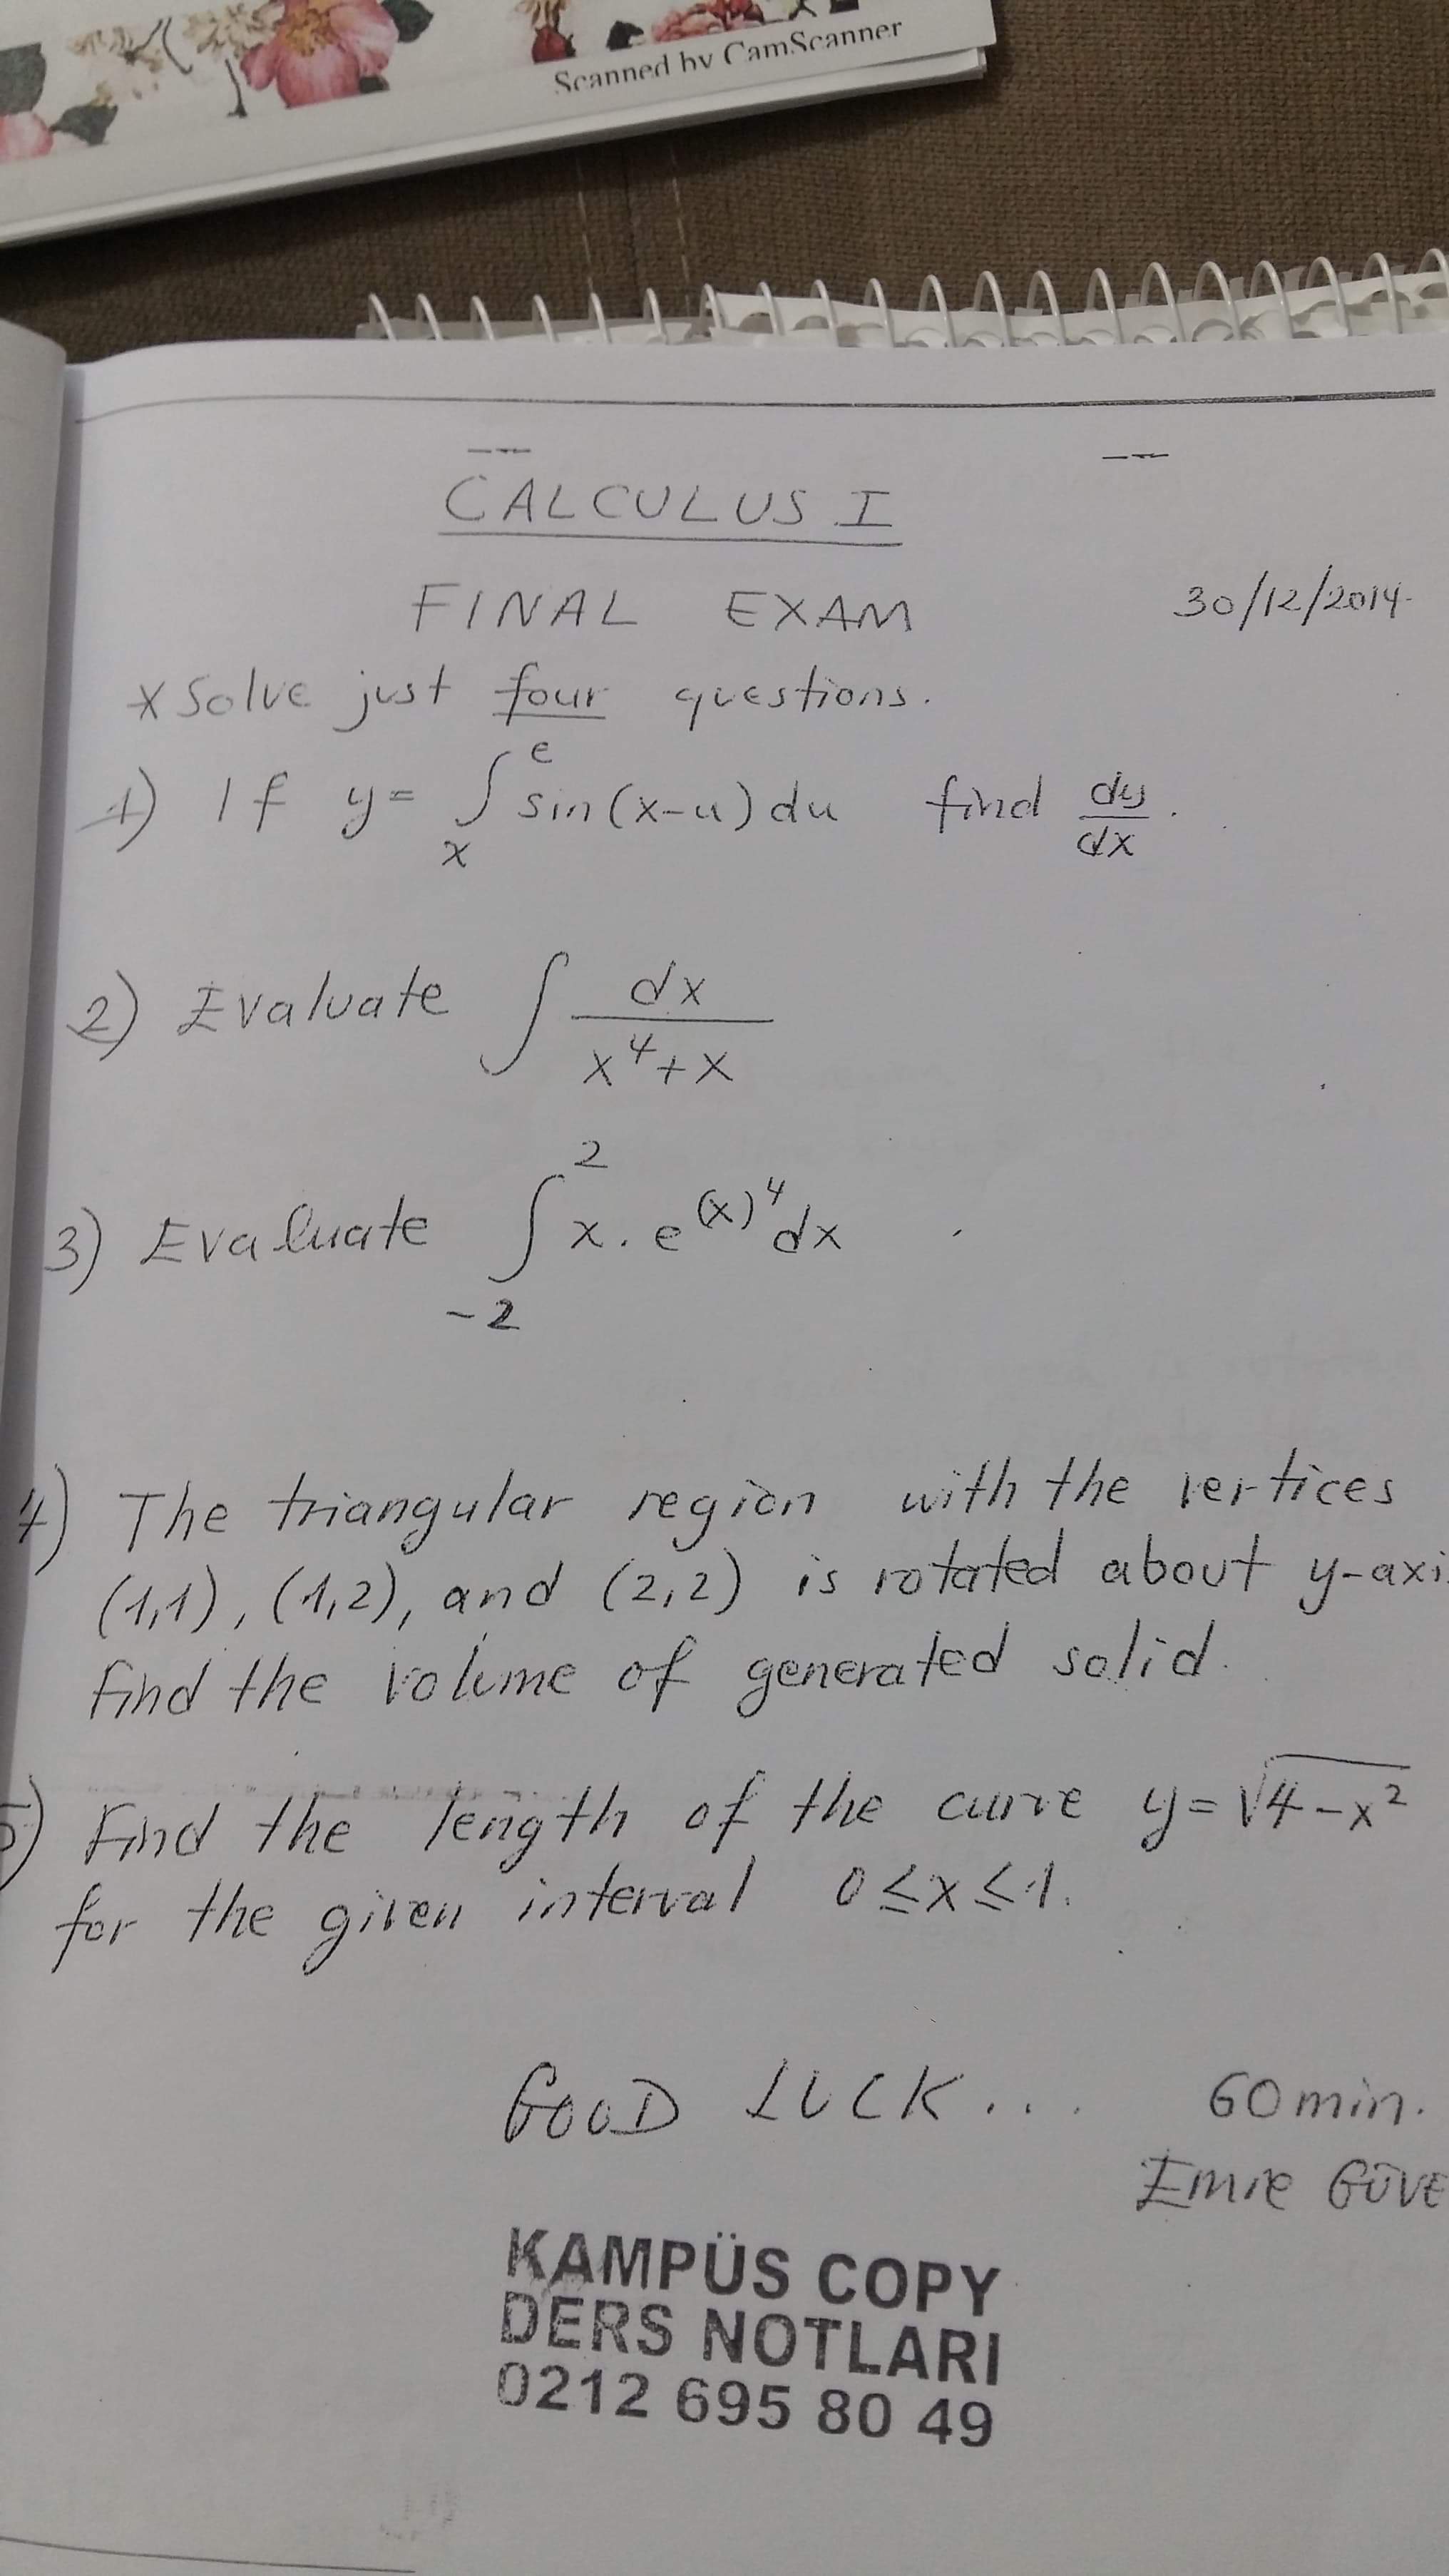 Scanned by CamScanner
CALCULUS I
FINAL EXAM 30/12/2014
x Solve just four questions.
1) If y = ∫ₓᵉ sin(x-u) du find dy/dx.
2) Evaluate ∫ dx/(x⁴+x)
3) Evaluate ∫₋₂² x.e^(x)⁴ dx
4) The triangular region with the vertices
(1,1), (1,2), and (2,2) is rotated about y-axi
find the volume of generated solid.
5) Find the length of the curve y=√4-x²
for the given interval 0≤x≤1.
GOOD LUCK... 60 min.
Emre GÜVE
KAMPÜS COPY
DERS NOTLARI
0212 695 80 49